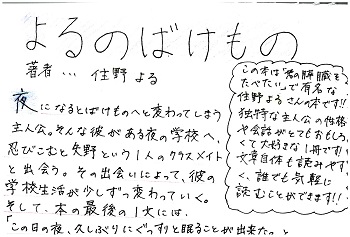 よるのばけもの
著者… 住野よる
夜になるとばけものへと変わってしまう
主人公。そんな彼がある夜の学校へ、
忍びこむと矢野という1人のクラスメイト
と出会う。その出会いによって、彼の
学校生活が少しずつ変わっていく。
そして、本の最後の1文には、
「この日の夜、久しぶりにぐっすりと眠ることが出来た。」と
この本は「君の膵臓を
たべたい」で有名な
住野よるさんの本です!!
独特な主人公の性格
や会話がとてもおもしろ
くて大好きな1冊です!
文章自体も読みやす
く、誰でも気軽に
読むことができます!!